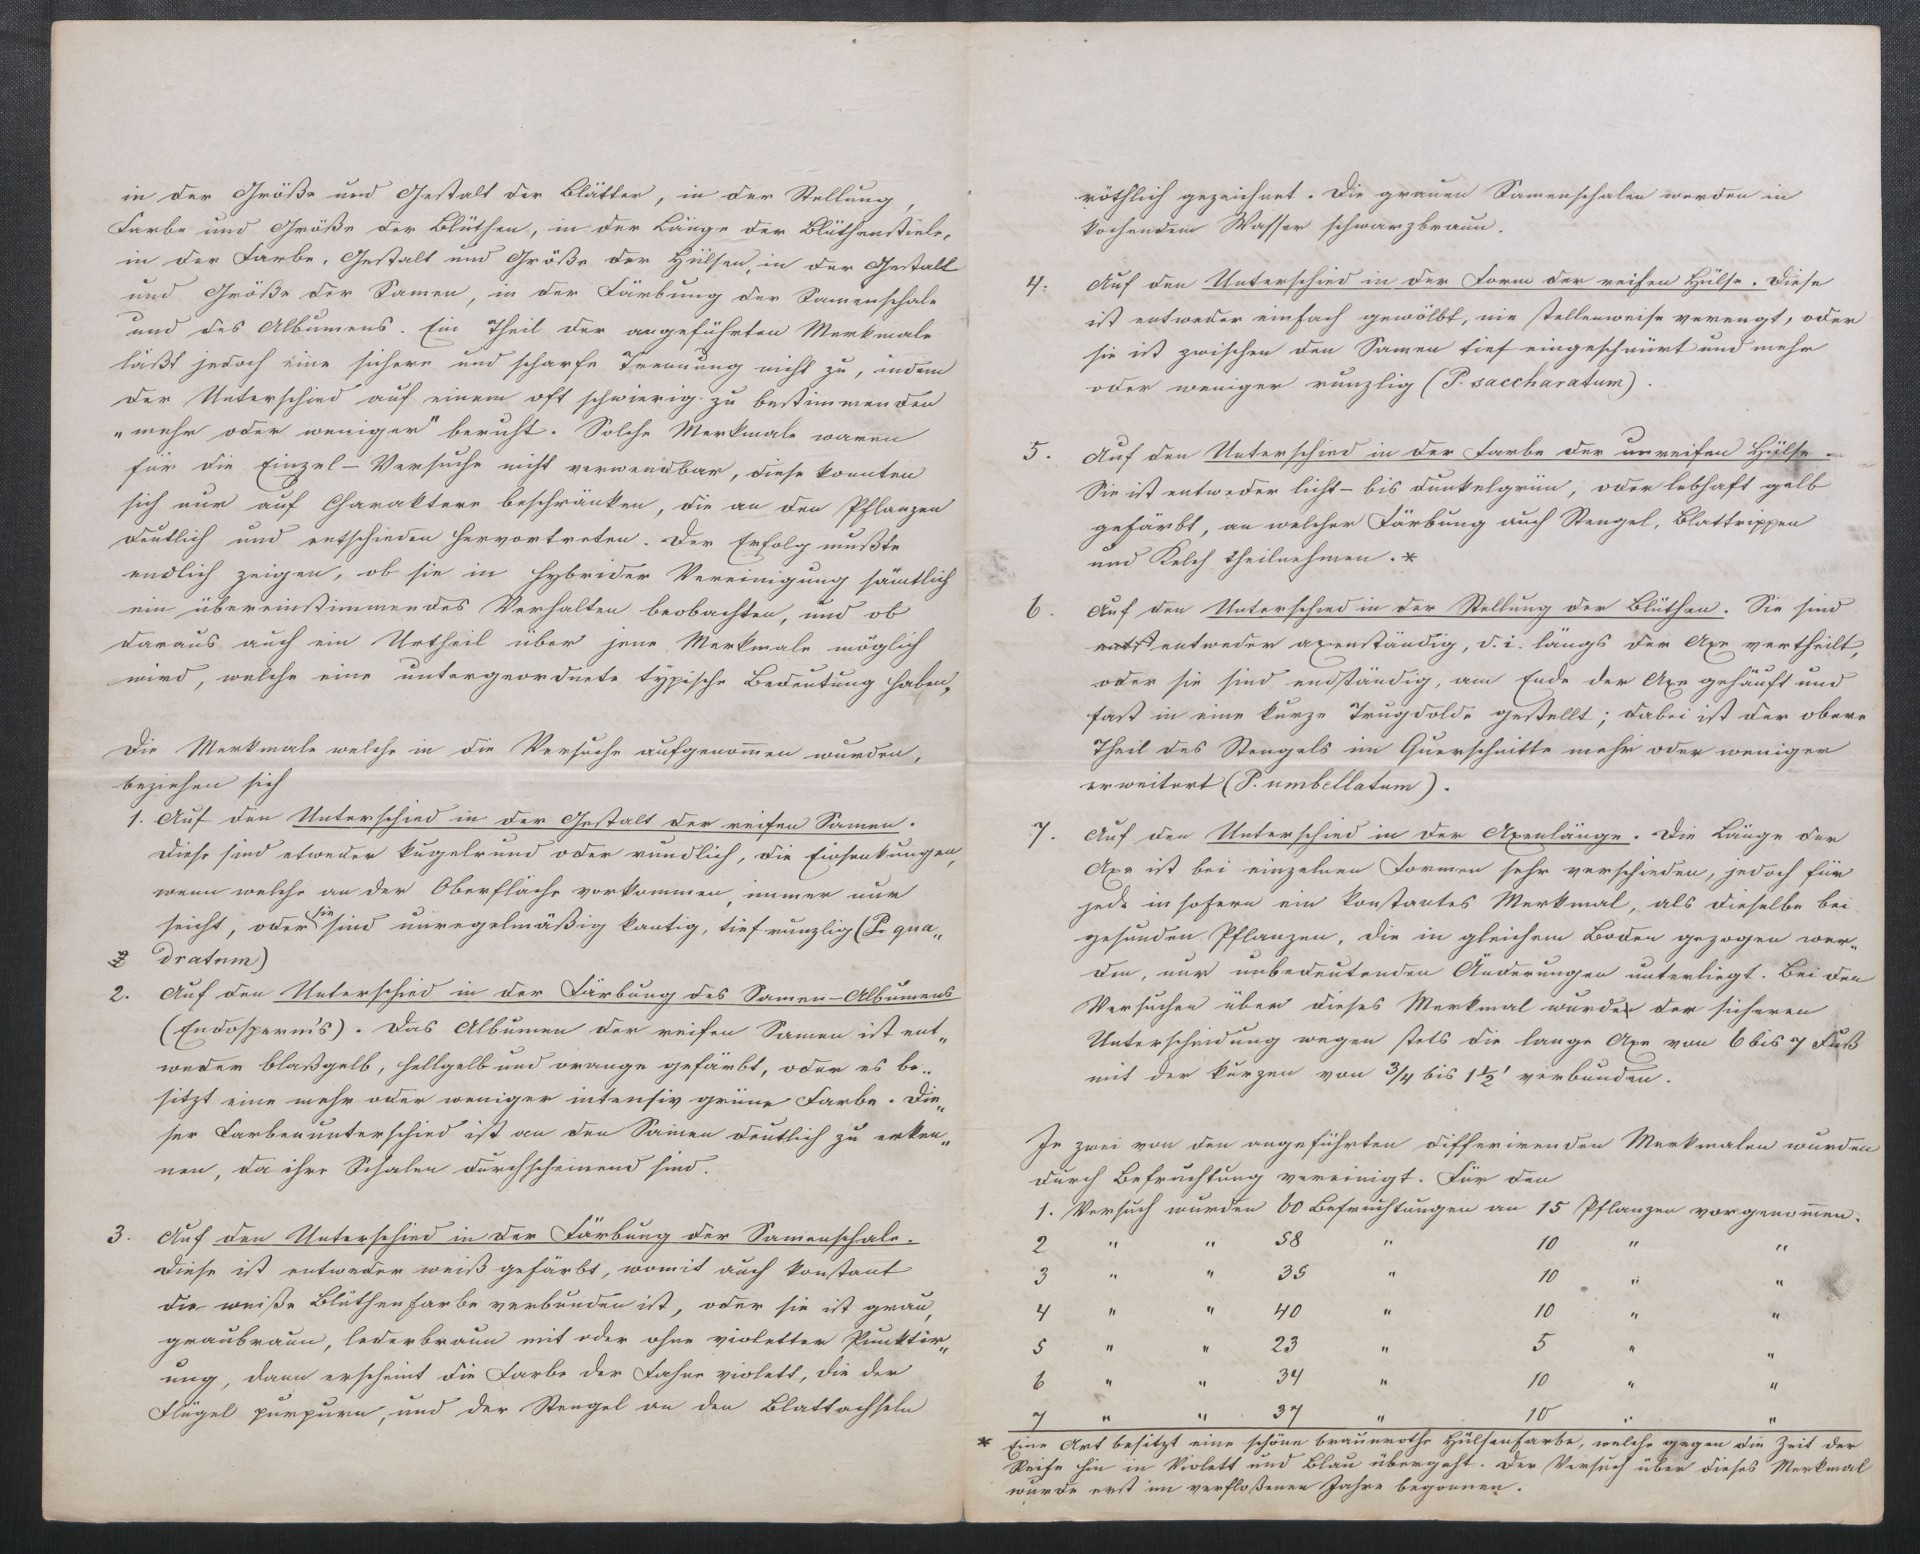 in der Größe und Gestalt der Blätter, in der Stellung,
Farbe und Größe der Blüthen, in der Länge der Blüthenstiele,
in der Farbe, Gestalt und Größe der Hülsen, in der Gestalt
und Größe der Samen, in der Färbung der Samenschale
und des Albumens. Ein Theil der angeführten Merkmale
läßt jedoch eine sichere und scharfe Trennung nicht zu, indem
der Unterschied auf einem oft schwierig zu bestimmenden
„mehr oder weniger" beruht. Solche Merkmale waren
für die Einzel-Versuche nicht verwendbar, diese konnten
sich nur auf Charaktere beschränken, die an den Pflanzen
deutlich und entschieden hervortreten. Der Erfolg mußte
endlich zeigen, ob sie in hybrider Vereinigung sämtlich
ein übereinstimmendes Verhalten beobachten, und ob
daraus auch ein Urtheil über jene Merkmale möglich
wird, welche eine untergeordnete typische Bedeutung haben.
Die Merkmale welche in die Versuche aufgenomen wurden,
beziehen sich
1. Auf den Unterschied in der Gestalt der reifen Samen.
Diese sind etweder kugelrund oder rundlich, die Einsenkungen,
wenn welche an der Oberfläche vorkommen, immer nur
seicht, oder sie sind unregelmäßig kantig, tief runzlig (P. qua„
2 dratum)
2. Auf den Unterschied in der Färbung des Samen-Albumens
(Endosperms). Das Albumen der reifen Samen ist ent„
weder blaßgelb, hellgelb und orange gefärbt, oder es be„
sitzt eine mehr oder weniger intensiv grüne Farbe. Die„
ser Farbenunterschied ist an den Samen deutlich zu erken„
nen, da ihre Schalen durchscheinend sind.
3. Auf den Unterschied in der Färbung der Samenschale.
Diese ist entweder weiß gefärbt, womit auch konstant
die weiße Blüthenfarbe verbunden ist, oder sie ist grau,
graubraun, lederbraun mit oder ohne violetter Punktir„
ung, dann erscheint die Farbe der Fahne violett, die der
Flügel purpurn, und der Stengel an den Blattachseln
röthlich gezeichnet. Die grauen Samenschalen werden in
kochendem Wasser schwarzbraun.
4. Auf den Unterschied in der Form der reifen Hülse. Diese
ist entweder einfach gewölbt, nie stellenweise verengt, oder
sie ist zwischen den Samen tief eingeschnürt und mehr
oder weniger runzlig (P. saccharatum).
5. Auf den Unterschied in der Farbe der unreifen Hülse.
Sie ist entweder licht- bis dunkelgrün, oder lebhaft gelb
gefärbt, an welcher Färbung auch Stengel, Blattrippen
und Kelch theilnehmen.*
6. Auf den Unterschied in der Stellung der Blüthen. Sie sind
entweder axenständig, d. i. längs der Axe vertheilt,
oder sie sind endständig, am Ende der Axe gehäuft und
fast in eine kurze Trugdolde gestellt; dabei ist der obere
Theil des Stengels im Querschnitte mehr oder weniger
erweitert (P. umbellatum).
7. Auf den Unterschied in der Axenlänge. Die Länge der
Axe ist bei einzelnen Formen sehr verschieden, jedoch für
jede in sofern ein konstantes Merkmal, als dieselbe bei
gesunden Pflanzen, die in gleichem Boden gezogen wer„
den, nur unbedeutenden Änderungen unterliegt. Bei den
Versuchen über dieses Merkmal wurde der sicheren
Unterscheidung wegen stets die lange Axe von 6 bis 7 Fuß
mit der kurzen von 3/4 bis 1 1/2' verbunden.
Je zwei von den angeführten differirenden Merkmalen wurden
durch Befruchtung vereinigt. Für den
1. Versuch wurden 60 Befruchtungen an 15 Pflanzen vorgenomen.
2 " " 58 " 10 " "
3 " " 35 " 10 " "
4 " " 40 " 10 " "
5 " " 23 " 5 " "
6 " " 34 " 10 " "
7 " " 37 " 10 " "
* Eine Art besitzt eine schöne braunrothe Hülsenfarbe, welche gegen die Zeit der
Reife hin in Violett und Blau übergeht. Der Versuch über dieses Merkmal
wurde erst im verfloßenen Jahre begonnen.